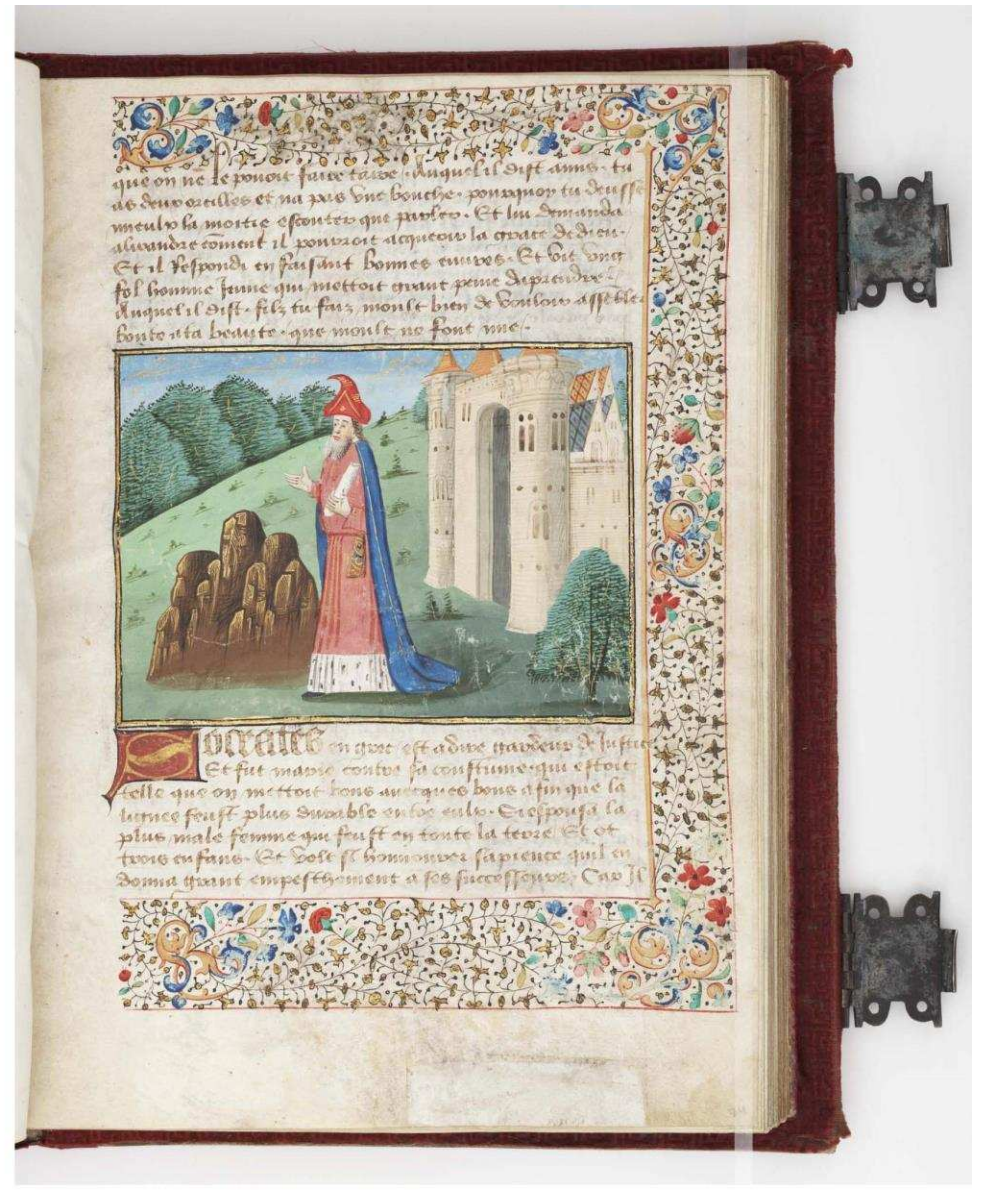 que on ne le pouoit faire taire. Auquel il dist amis. tu
as deux oreilles et na pas une bouche. pourquoy tu deusse
mieulx la moitie escouter que parler. Et lui demanda
alixandre coment il pourroit acquerir la grace de dieu.
Et il Respondi en faisant bonnes euures. Et vit ung
home Jeune qui mettoit grant peine daprendre.
Auquel il dist. filz tu fais moult bien de vouloir assebler
bonte a ta beaute. que moult ne font mie.
Socrates en grec est a dire gardeur de Justice
Et fut marie contre sa coustume. qui estoit
telle que on mettoit bons auecques bons afin que la
lignee feust plus durable entre eulx. Si espousa la
plus male femme qui feust en toute la terre. Et ot
trois enfans. Et volt si honnourer sapience quil en
donna grant empeschement a ses successeurs. Car Il